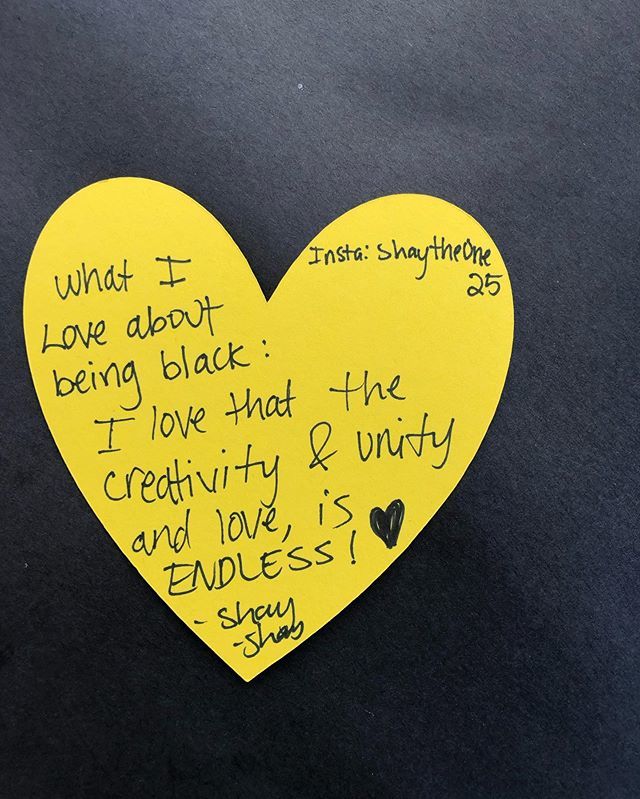 what I
Love about
being black:
I love that the
creativity & unity
and love, is
ENDLESS!
- shay
-shay
Insta: shaytheOne
25